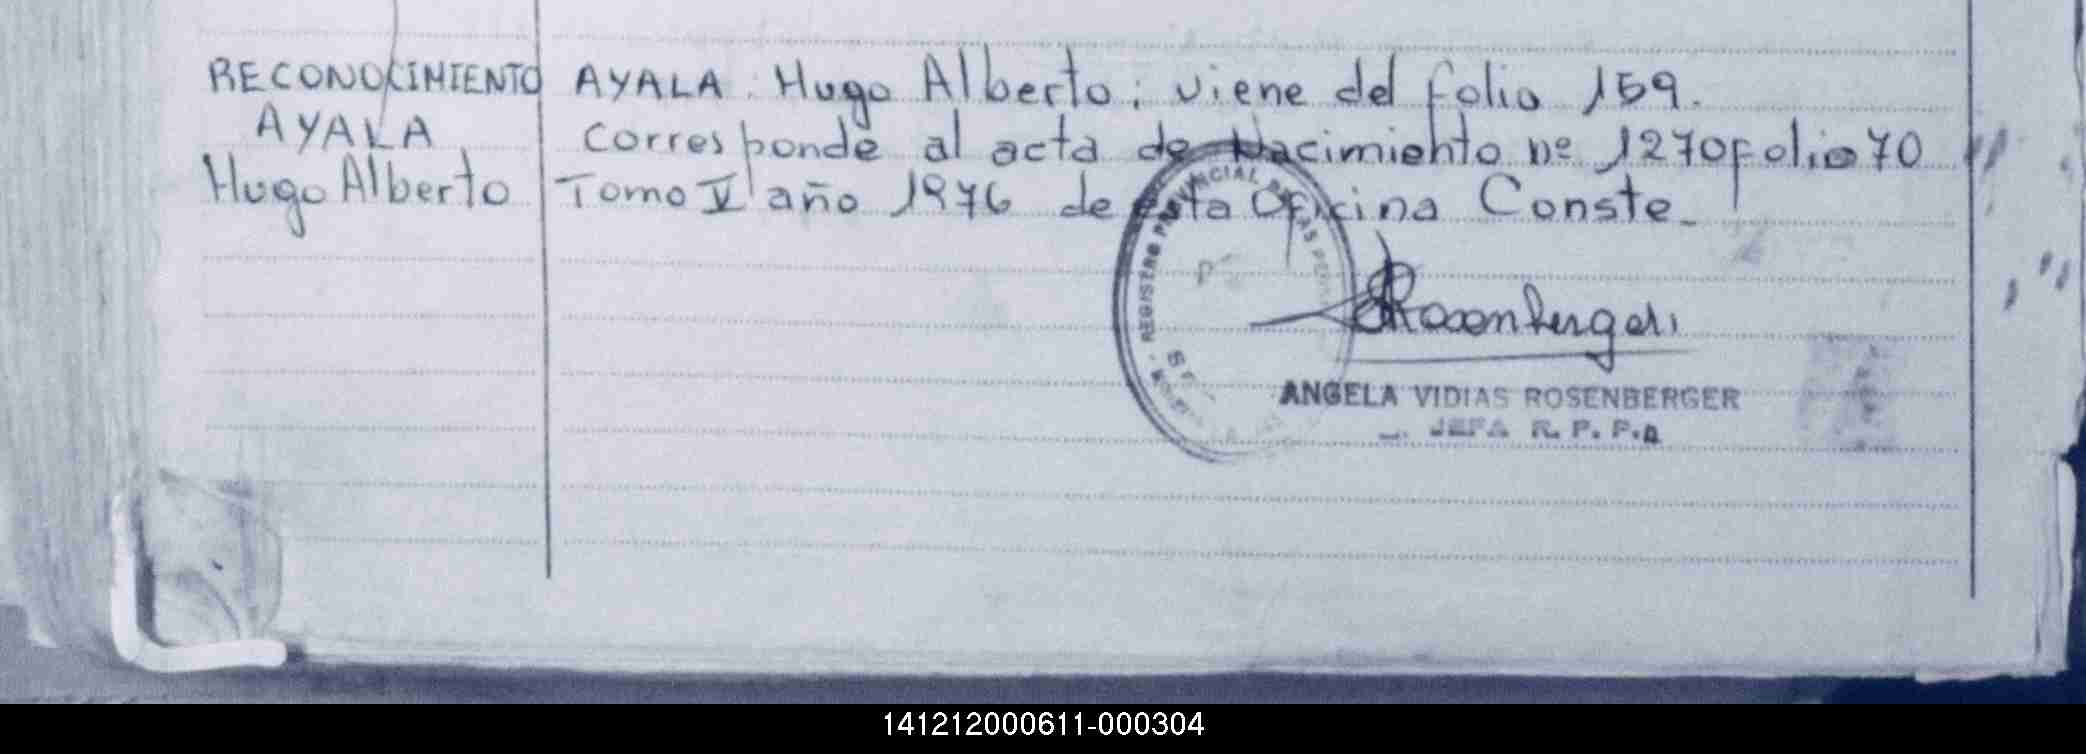 RECONOCIMIENTO
AYALA
Hugo Alberto
AYALA. Hugo Alberto; viene del folio 159.
Corresponde al acta de Nacimiento nº 1270 folio 70
Tomo V año 1976 de esta Oficina Conste_
REGISTRO PROVINCIAL DE LAS
Rosenberger
ANGELA VIDIAS ROSENBERGER
JEFA R. P. P.
141212000611-000304